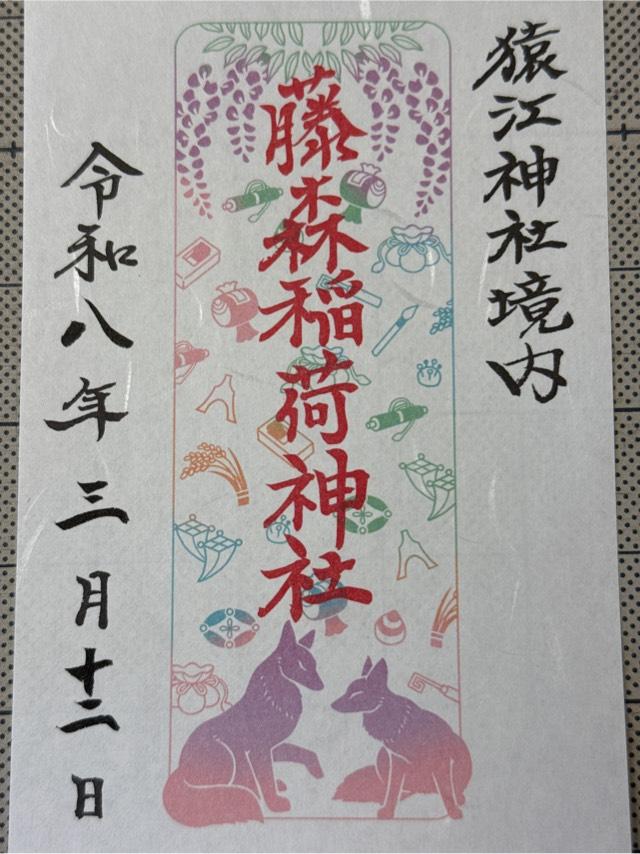 猿江神社境内
藤森稲荷神社
令和八年三月十二日